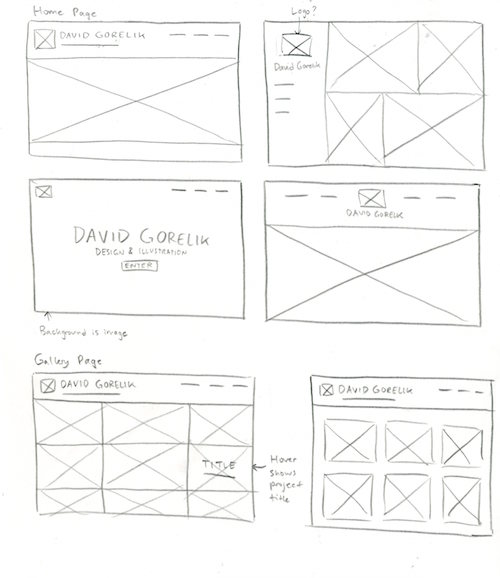 Home Page
DAVID GORELIK
Logo?
David Gorelik
DAVID GORELIK
DESIGN & ILLUSTRATION
ENTER
Background is image
DAVID GORELIK
Gallery Page
DAVID GORELIK
TITLE
Hover
shows
project
title
DAVID GORELIK